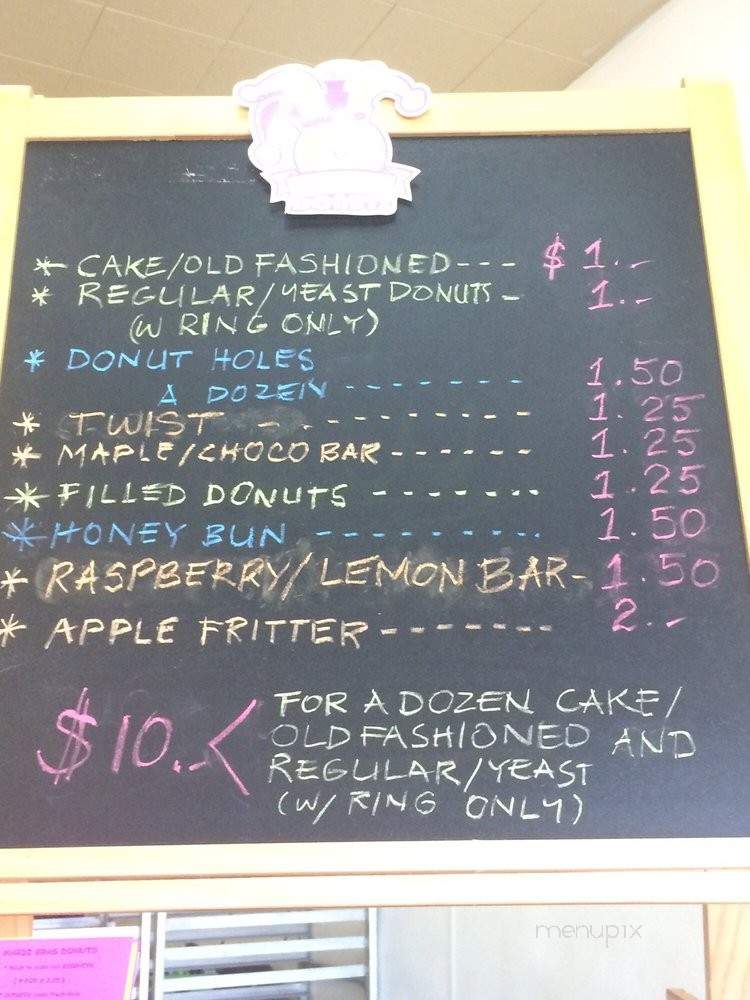 * CAKE/OLD FASHIONED--- $ 1.--
* REGULAR/YEAST DONUTS - 1.--
(W RING ONLY)
* DONUT HOLES
A DOZEN -------- 1.50
* TWIST ---------- 1.25
* MAPLE/CHOCO BAR ------ 1.25
* FILLED DONUTS ------- 1.25
* HONEY BUN ---------- 1.50
* RASPBERRY/LEMON BAR- 1.50
* APPLE FRITTER ------- 2.--
$10.< FOR A DOZEN CAKE/
OLD FASHIONED AND
REGULAR/YEAST
(W/ RING ONLY)
menupix